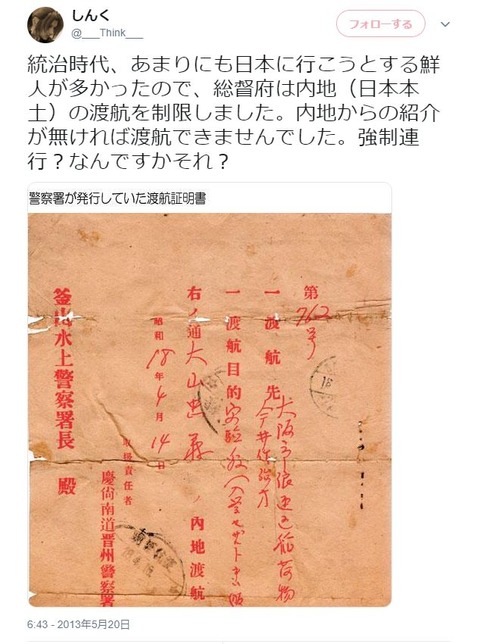 しんく
@___Think___
フォローする
統治時代、あまりにも日本に行こうとする鮮
人が多かったので、総督府は内地（日本本
土）の渡航を制限しました。内地からの紹介
が無ければ渡航できませんでした。強制連
行？なんですかそれ？
警察署が発行していた渡航証明書
第762号
一 渡航先 大阪市浪速区
今井
一 渡航目的
右ノ通 大山 ノ内地渡航
昭和18年4月14日
取扱責任者
慶尚南道晋州警察署
釜山水上警察署長 殿
6:43 - 2013年5月20日